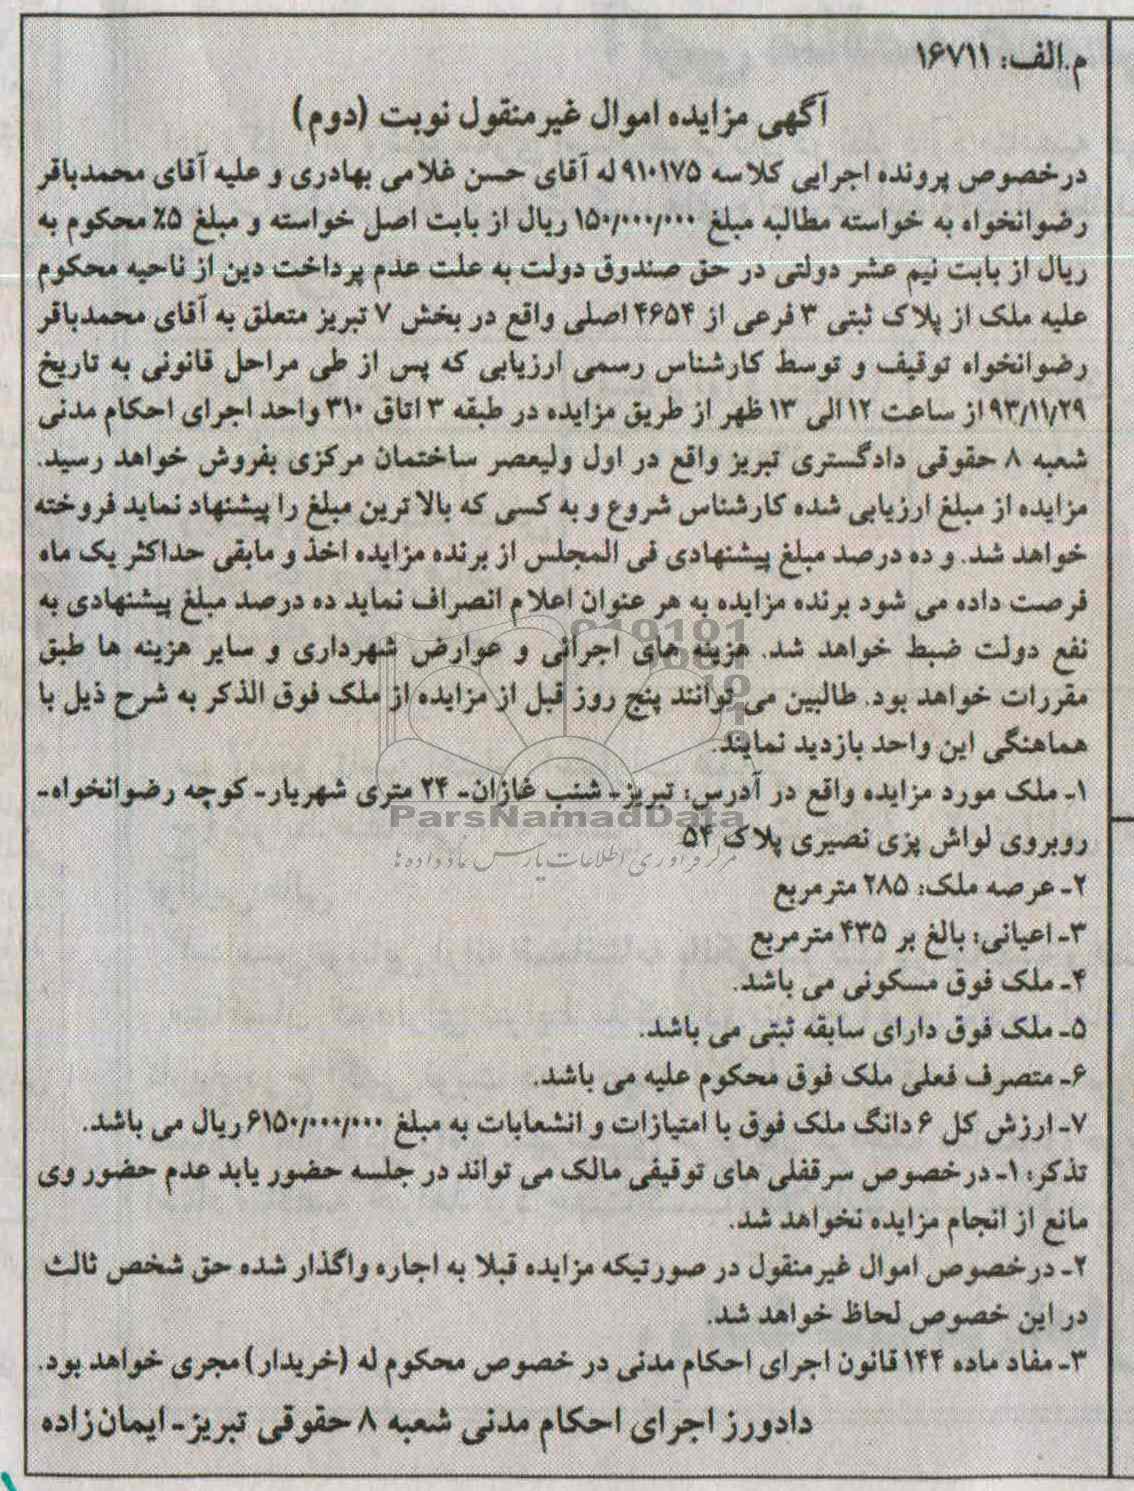 م.الف: ۱۶۷۱۱
آگهی مزایده اموال غیرمنقول نوبت (دوم)
درخصوص پرونده اجرایی کلاسه ۹۱۰۱۷۵ له آقای حسن غلامی بهادری و علیه آقای محمدباقر
رضوانخواه به خواسته مطالبه مبلغ ۱۵۰/۰۰۰/۰۰۰ ریال از بابت اصل خواسته و مبلغ ۵٪ محکوم به
ریال از بابت نیم عشر دولتی در حق صندوق دولت به علت عدم پرداخت دین از ناحیه محکوم
علیه ملک از پلاک ثبتی ۳ فرعی از ۴۶۵۴ اصلی واقع در بخش ۷ تبریز متعلق به آقای محمدباقر
رضوانخواه توقیف و توسط کارشناس رسمی ارزیابی که پس از طی مراحل قانونی به تاریخ
۹۳/۱۱/۲۹ از ساعت ۱۲ الی ۱۳ ظهر از طریق مزایده در طبقه ۳ اتاق ۳۱۰ واحد اجرای احکام مدنی
شعبه ۸ حقوقی دادگستری تبریز واقع در اول ولیعصر ساختمان مرکزی بفروش خواهد رسید.
مزایده از مبلغ ارزیابی شده کارشناس شروع و به کسی که بالا ترین مبلغ را پیشنهاد نماید فروخته
خواهد شد. و ده درصد مبلغ پیشنهادی فی المجلس از برنده مزایده اخذ و مابقی حداکثر یک ماه
فرصت داده می شود برنده مزایده به هر عنوان اعلام انصراف نماید ده درصد مبلغ پیشنهادی به
نفع دولت ضبط خواهد شد. هزینه های اجرائی و عوارض شهرداری و سایر هزینه ها طبق
مقررات خواهد بود. طالبین می توانند پنج روز قبل از مزایده از ملک فوق الذکر به شرح ذیل با
هماهنگی این واحد بازدید نمایند.
۱ـ ملک مورد مزایده واقع در آدرس: تبریزـ شنب غازان- ۲۴ متری شهریار- کوچه رضوانخواه-
ParsNamadData
روبروی لواش پزی نصیری پلاک ۵۴
مرکز فرآوری اطلاعات پارس نماد داده ها
۲ـ عرصه ملک: ۲۸۵ مترمربع
۳ـ اعیانی: بالغ بر ۴۳۵ مترمربع
۴ـ ملک فوق مسکونی می باشد.
۵ـ ملک فوق دارای سابقه ثبتی می باشد.
۶ـ متصرف فعلی ملک فوق محکوم علیه می باشد.
۷ـ ارزش کل ۶ دانگ ملک فوق با امتیازات و انشعابات به مبلغ ۶۱۵۰/۰۰۰/۰۰۰ ریال می باشد.
تذکر: ۱ـ درخصوص سرقفلی های توقیفی مالک می تواند در جلسه حضور یابد عدم حضور وی
مانع از انجام مزایده نخواهد شد.
۲ـ درخصوص اموال غیرمنقول در صورتیکه مزایده قبلا به اجاره واگذار شده حق شخص ثالث
در این خصوص لحاظ خواهد شد.
۳ـ مفاد ماده ۱۴۴ قانون اجرای احکام مدنی در خصوص محکوم له (خریدار) مجری خواهد بود.
دادورز اجرای احکام مدنی شعبه ۸ حقوقی تبریز- ایمان‌زاده